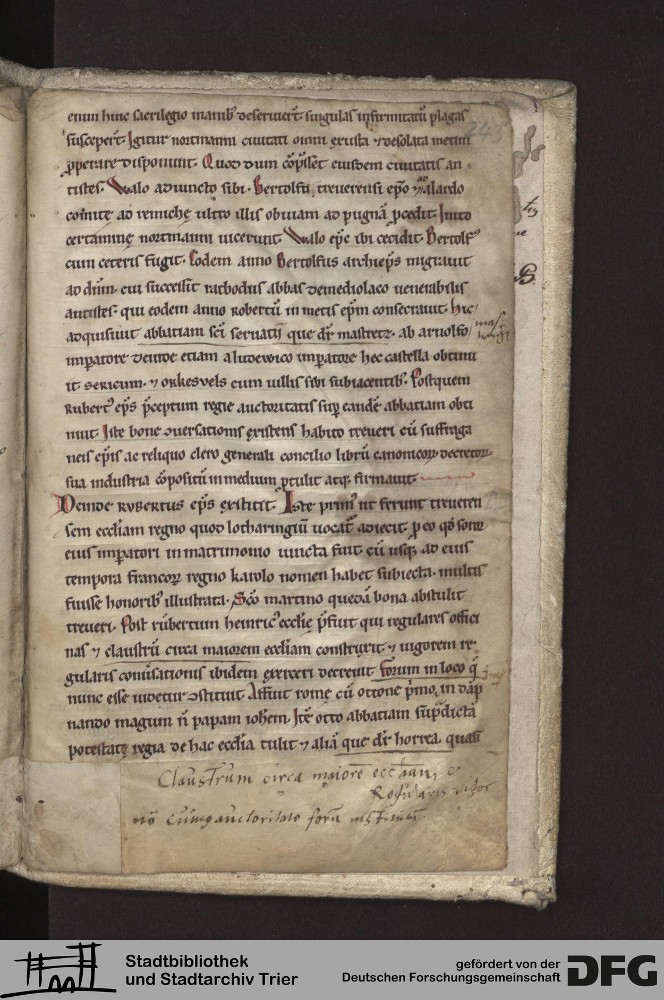 enim huic sacrilegio manib' deseruert singulas infirmitatū plagas
suscepert. Igitur nortmanni ciuitati omni exusta ⁊ desolata metim
p̄perare disponunt. Quod dum cōpisset eiusdem ciuitatis an
tistes. Walo adiuncto sibi. Bertolfu treuerensi ep̄o ⁊ alardo
comite ad remichę ultro illis obuiam ad pugnā p̄cedit. Inito
certaminę nortmanni uicerunt. Walo ep̄c ibi cecidit. Bertolf'
cum ceteris fugit. Eodem anno Bertolfus archiep̄s migrauit
ad dn̄m. cui successit ratbodus abbas demediolaco uenerabilis
antistes. qui eodem anno Robertū in metis ep̄m consecrauit. hic
adquisiuit abbatiam sc̄i seruatii que dr̄ mastretz. ab arnolfo
imp̄atore deinde etiam a ludewico imp̄atore hec castella obtinu
it sericum. ⁊ orkesuels cum uillis sibi subiacentib'. Postquem
Rubert' ep̄s p̄ceptum regie auctoritatis sup eandē abbatiam obti
nuit. Iste bone ɔuersationis existens habito treueri cū suffraga
neis ep̄is ac reliquo clero generali concilio librū canonicoꝝ decretoꝝ
sua industria cōpositū in medium ptulit atq; firmauit
Deinde Rvbertus ep̄s extitit. Iste prim' ut ferunt treueren
sem eccl̄iam regno quod lotharingiū uocat' adiecit. p eo qd̄ soror
eius imp̄atori in matrimonio iuncta fuit cū usq; ad eius
tempora francoꝝ regno karolo nomen habet subiecta. multis
fuisse honorib' illustrata. Sc̄o martino quedā bona abstulit
treueri. Post rubertum heinric' eccl̄ie p̄fuit qui regulares offici
nas ⁊ claustrū circa maiorem eccl̄iam construxit ⁊ uigorem re
gularis conuersationis ibidem exerceri decreuit. forum in loco q̄
nunc esse uidetur ɔstituit. Affuit rome cū ottone p̄mo. in dāp
nando magum n̄ papam ioh̄em. Itē otto abbatiam sup̄dictā
potestatę regia de hac eccl̄ia tulit ⁊ aliā que dr̄ horrea. quasi
Claustrum circa maiorē eccl̄iam, e
Regularis uigor
forū instituit
243
Stadtbibliothek
und Stadtarchiv Trier
gefördert von der
Deutschen Forschungsgemeinschaft
DFG